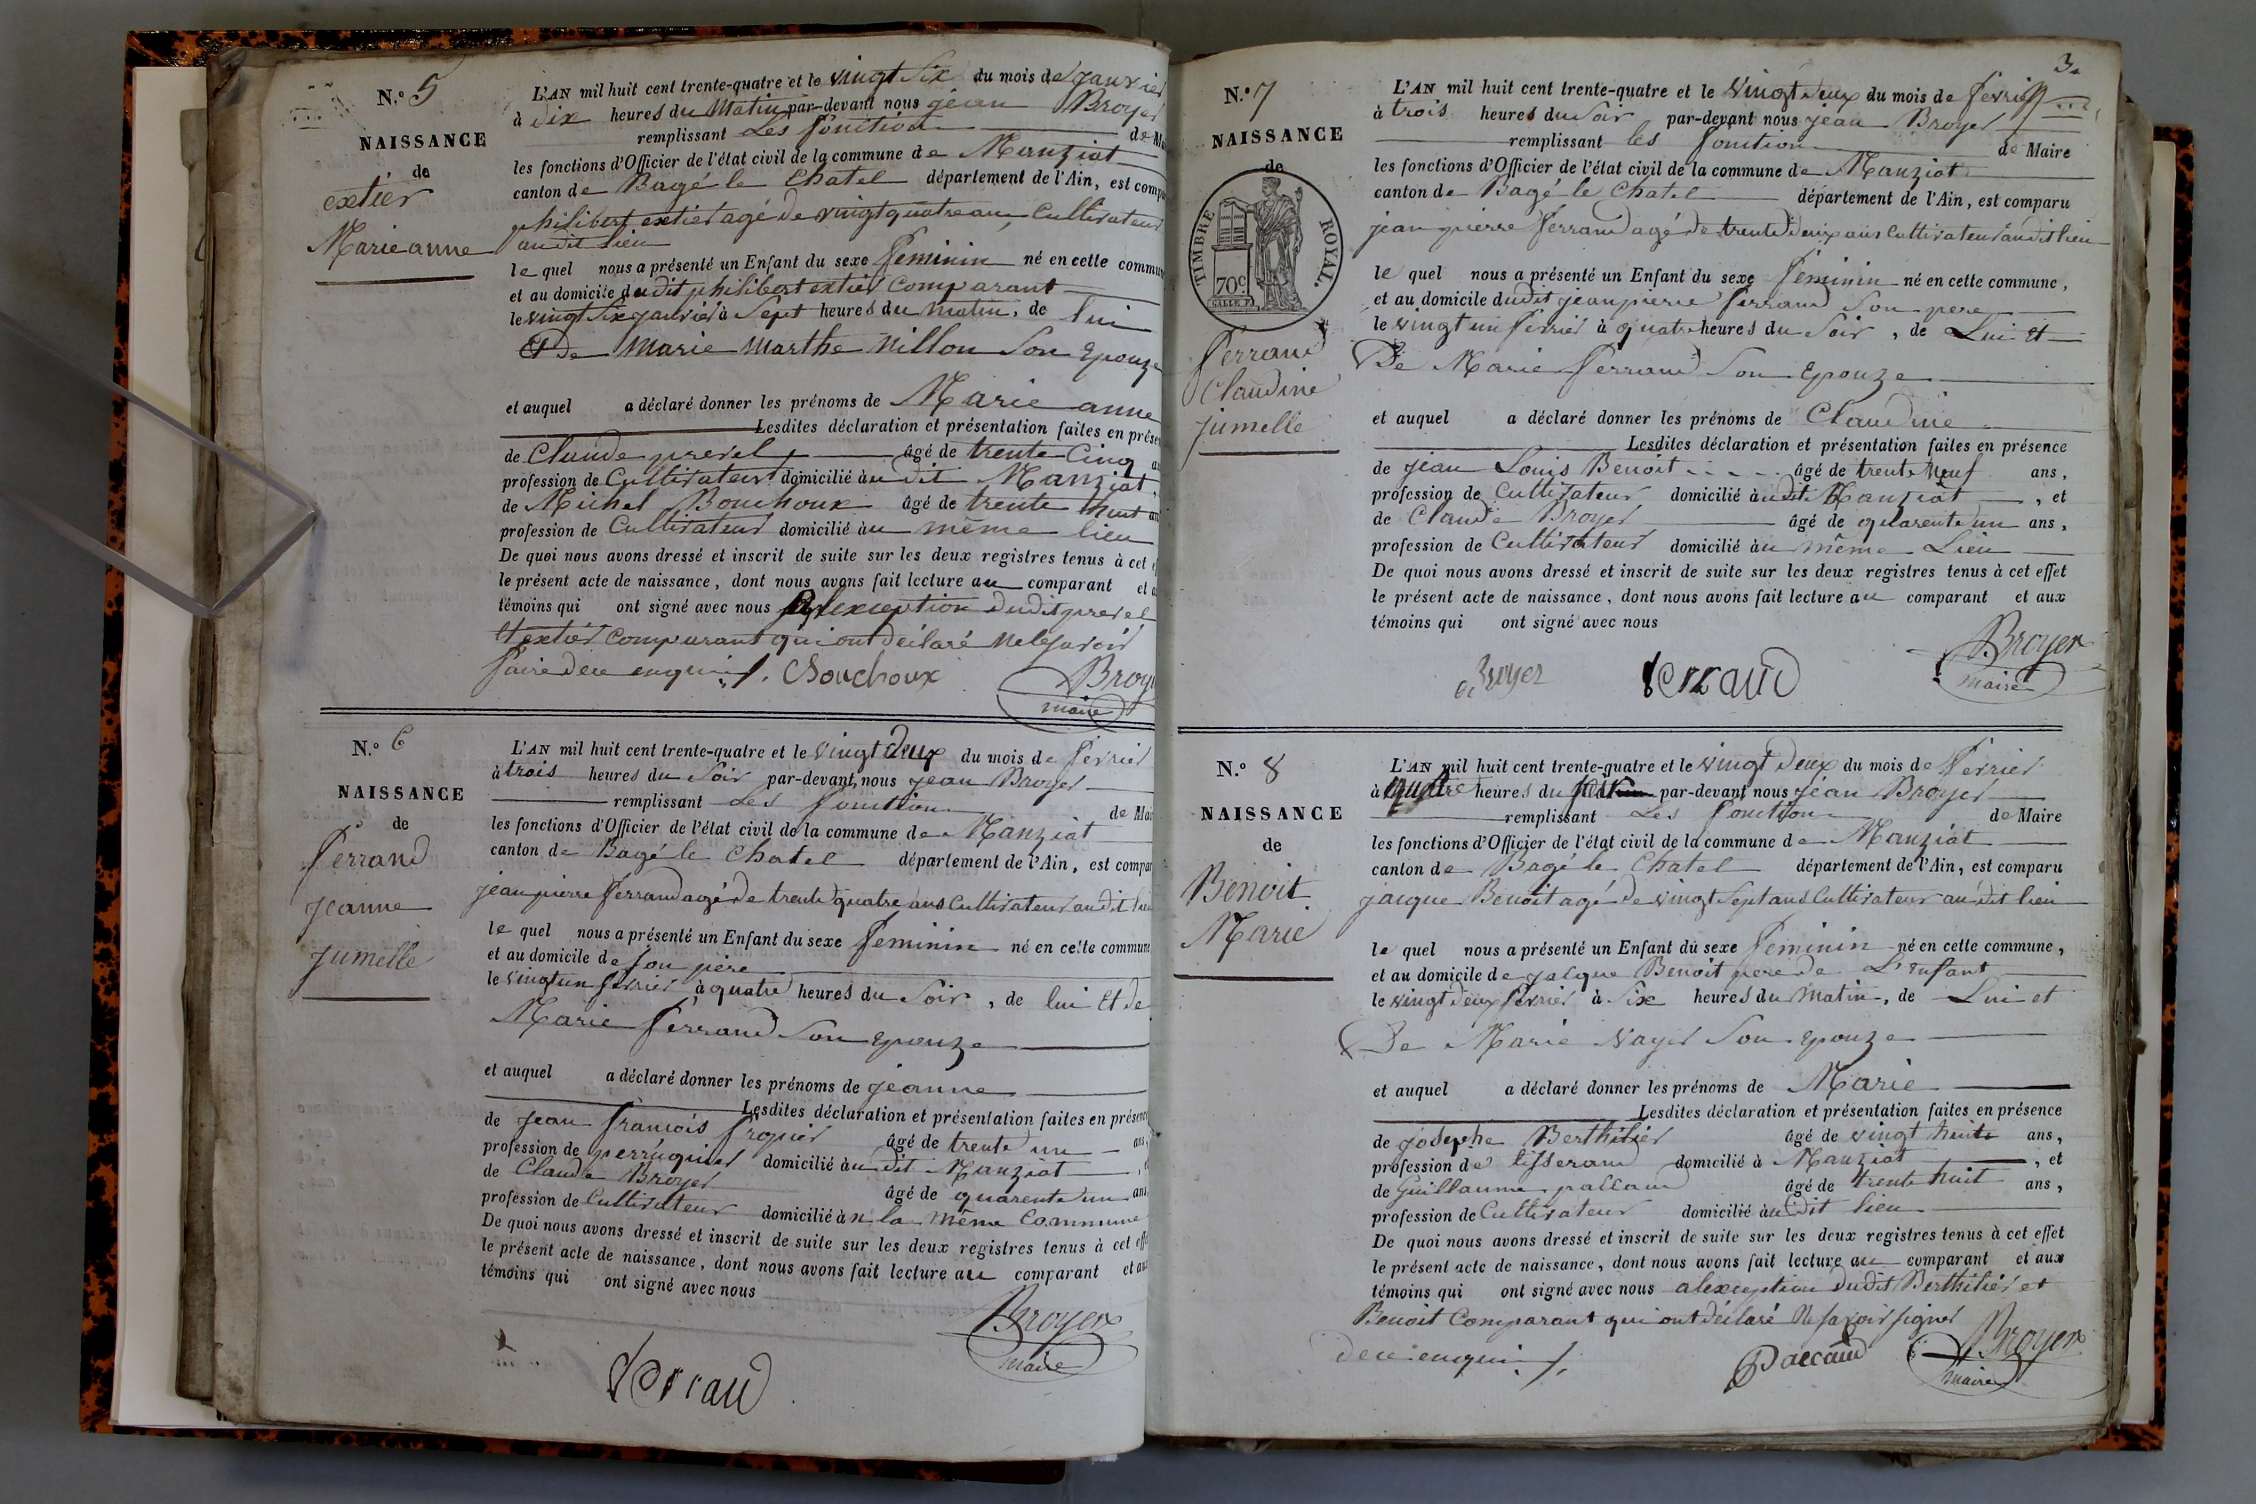 N.° 5
NAISSANCE
de
extier
Marie anne
L'AN mil huit cent trente-quatre et le vingt Six du mois de Janvier
à dix heures du Matin par-devant nous jean Broyer
remplissant Les fonction de Ma
les fonctions d'Officier de l'état civil de la commune de Manziat
canton de Bagé le Chatel département de l'Ain, est compa
philibert extier agé de vingt quatre ans, Cultivateur
audit lieu
le quel nous a présenté un Enfant du sexe feminin né en cette commune
et au domicile dudit philibert extier Comparant
le vingt Six janvier à Sept heures du matin, de lui
Et de Marie Marthe Nillon Son Epouze
et auquel a déclaré donner les prénoms de Marie anne
Lesdites déclaration et présentation faites en présen
de Claude prevel âgé de trente Cinq an
profession de Cultivateur domicilié àu dit Manziat,
de Michel Bouchoux âgé de trente huit an
profession de Cultivateur domicilié àu même lieu
De quoi nous avons dressé et inscrit de suite sur les deux registres tenus à cet e
le présent acte de naissance, dont nous avons fait lecture au comparant et a
témoins qui ont signé avec nous alexception dudit prevel
Et extier Comparant qui ont déclaré ne le savoir
faire de ce enquis /. Bouchoux Broye
maire
N.° 6
NAISSANCE
de
ferrand
jeanne
jumelle
L'AN mil huit cent trente-quatre et le vingt deux du mois de fevrier
à trois heures du Soir par-devant nous jean Broyer
remplissant Les fonction de Mai
les fonctions d'Officier de l'état civil de la commune de Manziat
canton de Bagé le Chatel département de l'Ain, est compar
jean pierre ferrand agé de trente quatre ans Cultivateur audit lieu
le quel nous a présenté un Enfant du sexe feminin né en cette commune,
et au domicile de Son père
le vingt un fevrier à quatre heures du Soir, de lui Et de
Marie ferrand Son epouze
et auquel a déclaré donner les prénoms de jeanne
Lesdites déclaration et présentation faites en présenc
de jean francois fropier âgé de trente un ans,
profession de perruquier domicilié àu dit Manziat, e
de Claude Broyer âgé de quarente un ans
profession de Cultivateur domicilié àn la même Commune
De quoi nous avons dressé et inscrit de suite sur les deux registres tenus à cet effe
le présent acte de naissance, dont nous avons fait lecture au comparant et aux
témoins qui ont signé avec nous
Broyer
maire
ferraud
3.
N.° 7
NAISSANCE
de
TIMBRE ROYAL.
70c
ferrand
Claudine
jumelle
L'AN mil huit cent trente-quatre et le vingt deux du mois de fevrier
à trois heures du Soir par-devant nous jean Broyer
remplissant les fonction de Maire
les fonctions d'Officier de l'état civil de la commune de Manziat
canton de Bagé le Chatel département de l'Ain, est comparu
jean pierre ferrand agé de trente deux ans Cultivateur audit lieu
le quel nous a présenté un Enfant du sexe feminin né en cette commune,
et au domicile dudit jean pierre ferrand Son pere
le vingt un fevrier à quatre heures du Soir, de Lui Et
De Marie ferrand Son Epouze
et auquel a déclaré donner les prénoms de Claudine
Lesdites déclaration et présentation faites en présence
de jean Louis Benoit âgé de trente Neuf ans,
profession de Cultivateur domicilié àudit Manziat, et
de Claude Broyer âgé de quarente un ans,
profession de Cultivateur domicilié àu même Lieu
De quoi nous avons dressé et inscrit de suite sur les deux registres tenus à cet effet
le présent acte de naissance, dont nous avons fait lecture au comparant et aux
témoins qui ont signé avec nous
Broyer
maire
Broyer ferraud
N.° 8
NAISSANCE
de
Benoit
Marie
L'AN mil huit cent trente-quatre et le vingt deux du mois de fevrier
à quatre heures du soir par-devant nous jean Broyer
remplissant Les fonction de Maire
les fonctions d'Officier de l'état civil de la commune de Manziat
canton de Bagé le Chatel département de l'Ain, est comparu
jacque Benoit agé de vingt Sept ans Cultivateur audit lieu
le quel nous a présenté un Enfant du sexe feminin né en cette commune,
et au domicile de jacque Benoit pere de L'enfant
le vingt deux fevrier à Six heures du Matin, de Lui et
De Marie vayer Son epouze
et auquel a déclaré donner les prénoms de Marie
Lesdites déclaration et présentation faites en présence
de josephe Berthilier âgé de vingt huit ans,
profession de tisserand domicilié à Manziat, et
de Guillaume paccaud âgé de trente huit ans,
profession de Cultivateur domicilié àudit lieu
De quoi nous avons dressé et inscrit de suite sur les deux registres tenus à cet effet
le présent acte de naissance, dont nous avons fait lecture au comparant et aux
témoins qui ont signé avec nous alexception dudit Berthilier et
Benoit Comparant qui ont déclaré Ne savoir signer
de ce enquis /. Paccaud Broyer
maire